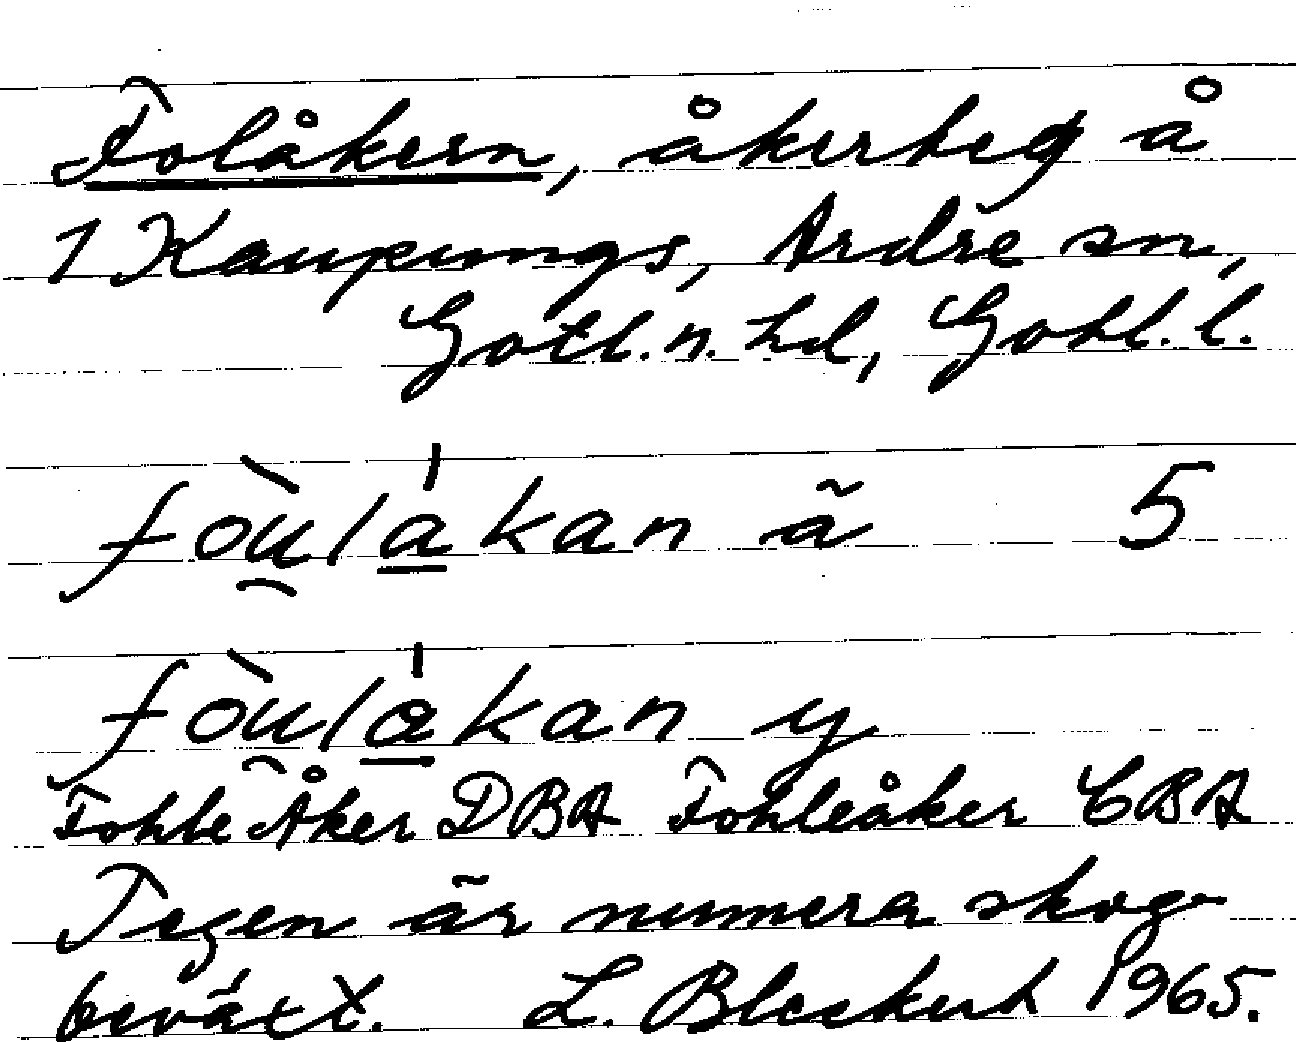 Folåkern, åkerteg å
1 Kaupungs, Ardre sn,
Gotl. n. hd, Gotl. l.
fòu̯lá̱kan ä̃ 5
fòu̯lá̱kan y
Fohle Åker DBA Fohleåker CBA
Tegen är numera skog-
beväxt. L. Bleckert 1965.